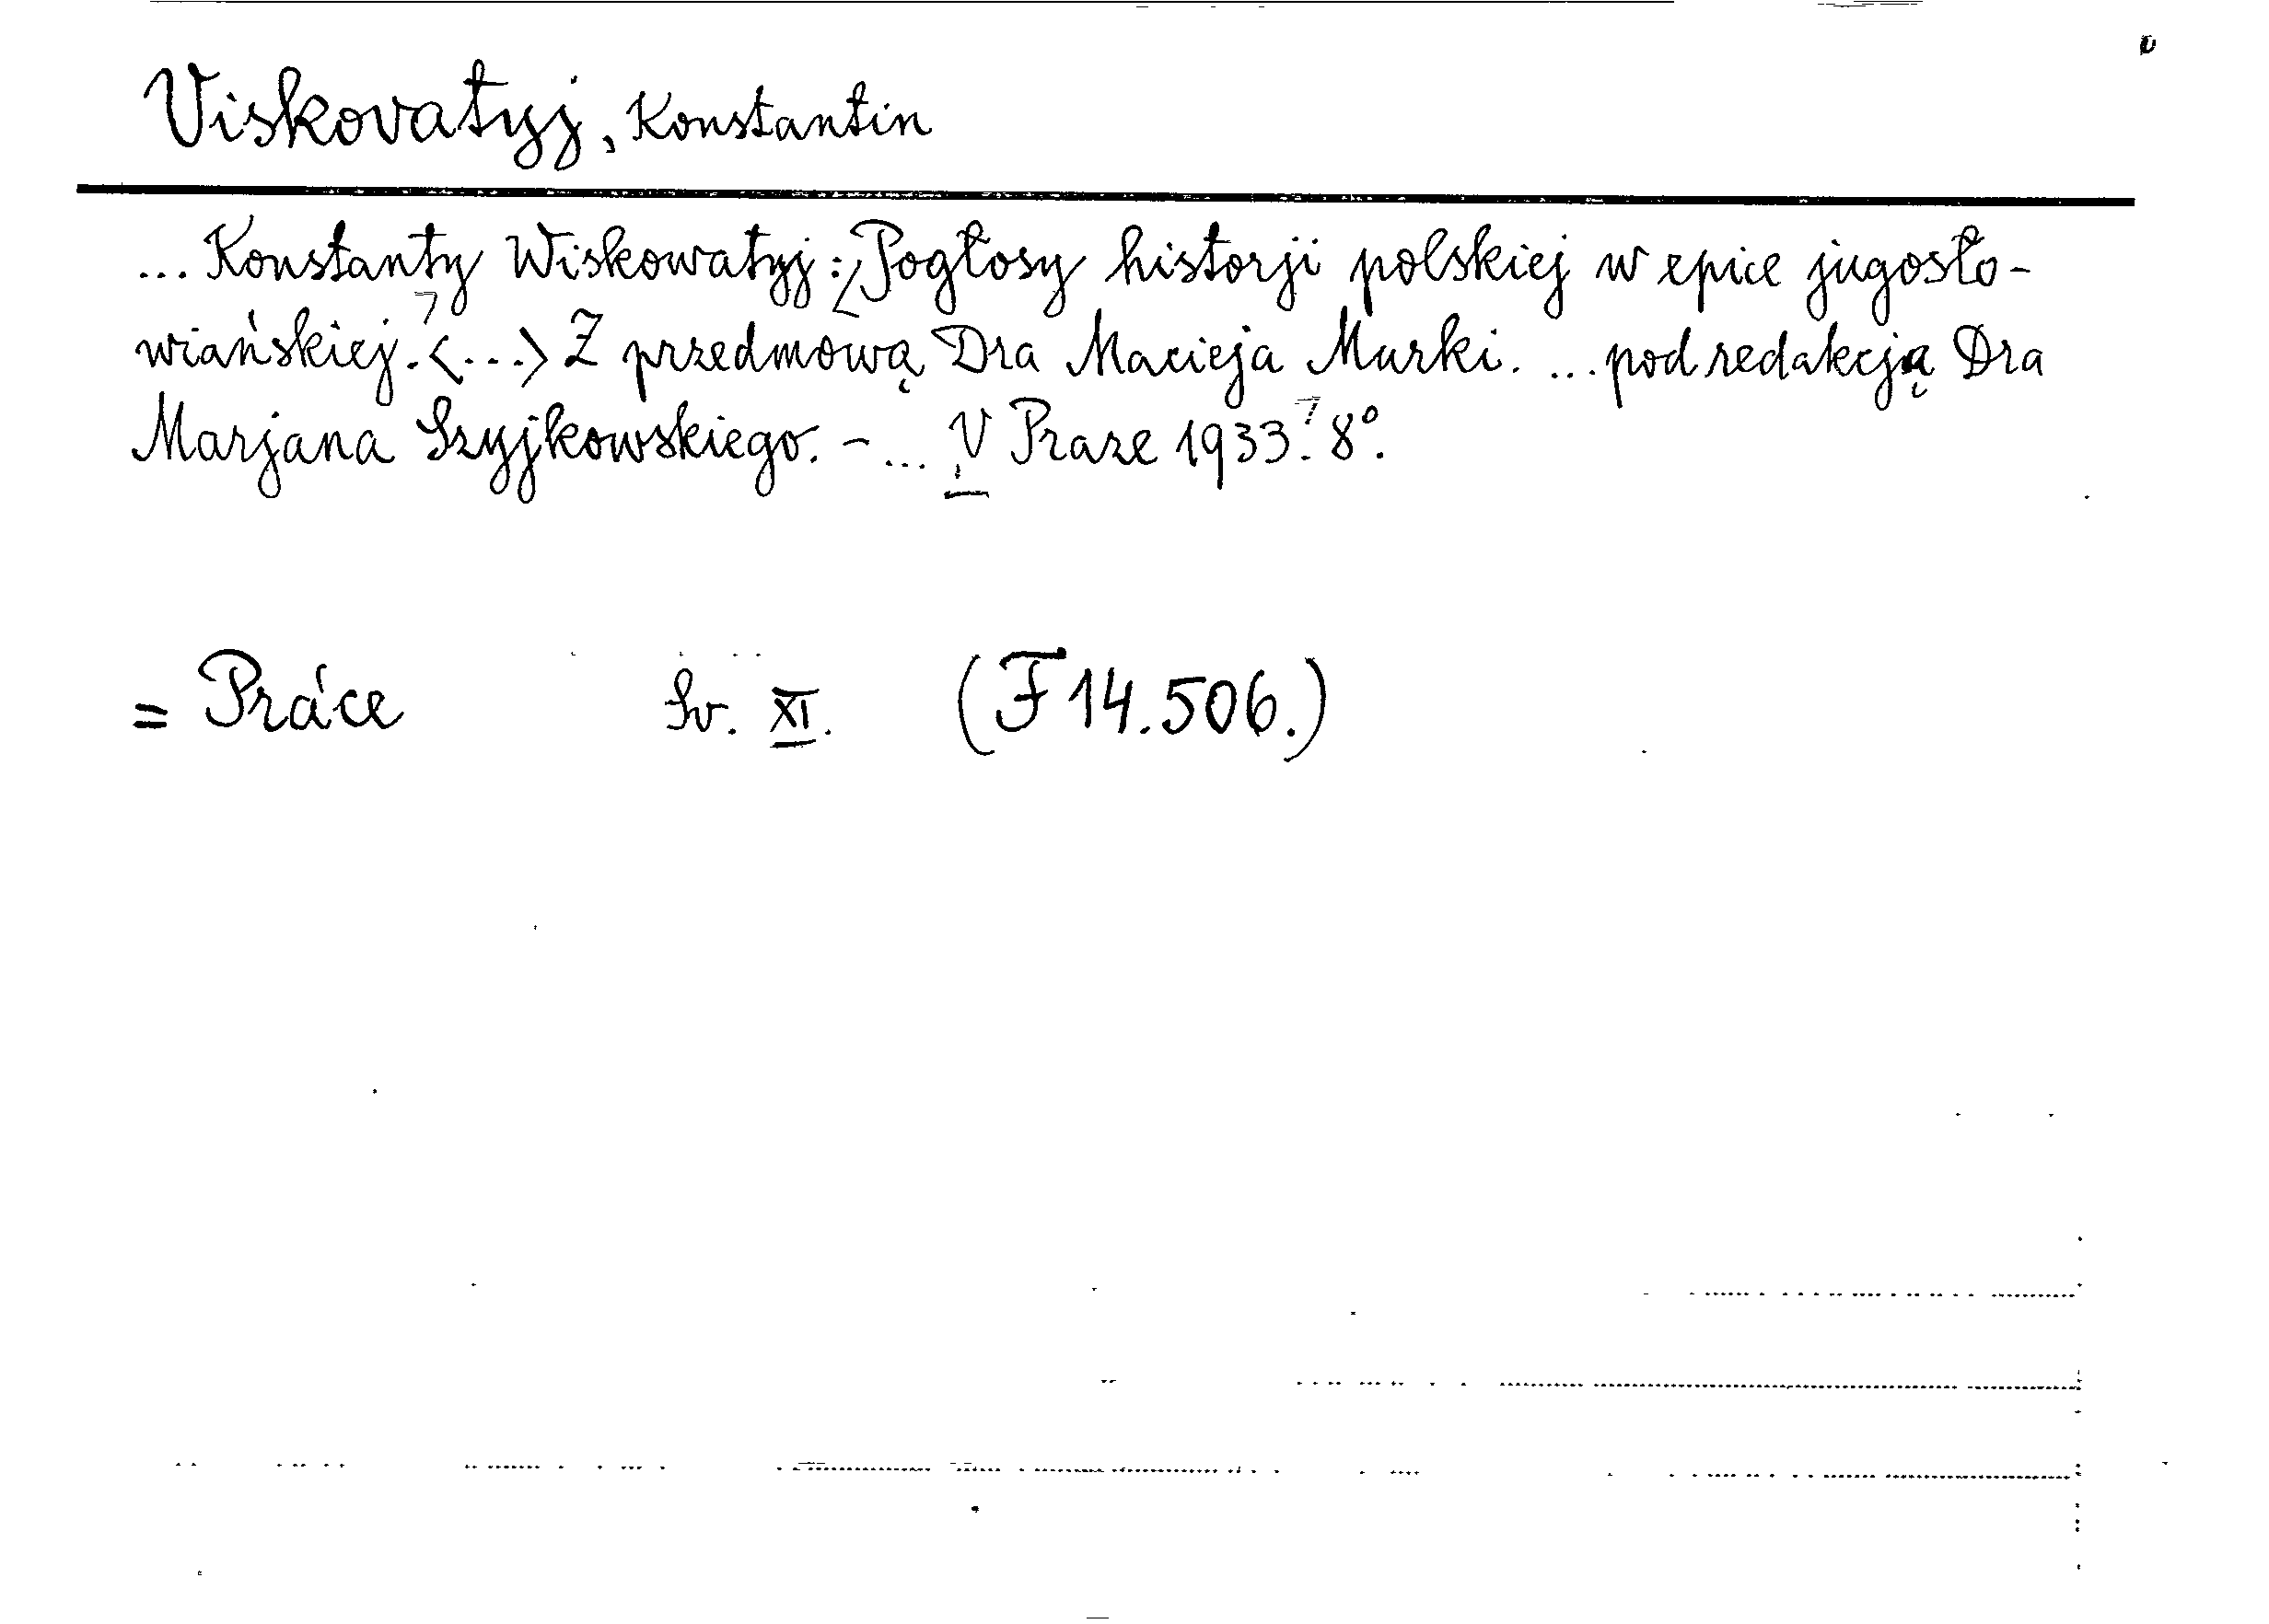 Viskovatyj, Konstantin
... Konstanty Wiskowatyj: Pogłosy historji polskiej w epice jugosło-
wiańskiej. <...> Z przedmową Dra Macieja Murki. ... pod redakcją Dra
Marjana Szyjkowskiego. - ... V Praze 1933. 8°.
= Práce Sv. XI. (F 14.506.)